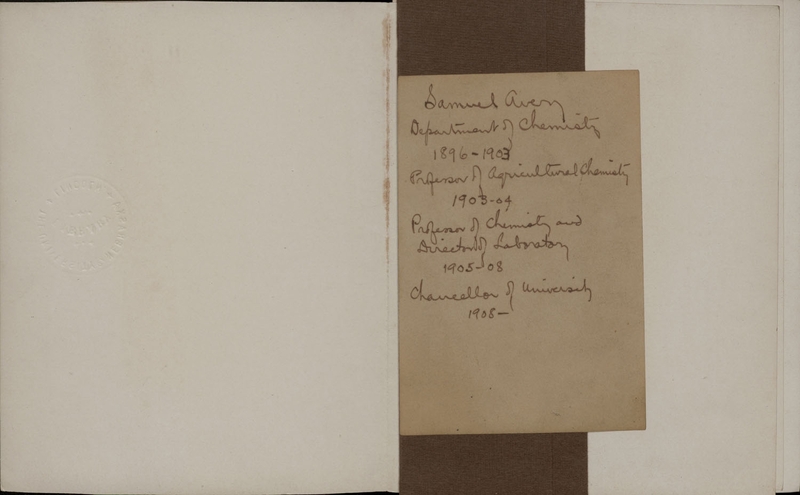 Samuel Avery
Department of Chemistry
1896-1903
Professor of Agricultural Chemistry
1903-04
Professor of Chemistry and
Director of Laboratory
1905-08
Chancellor of University
1908-